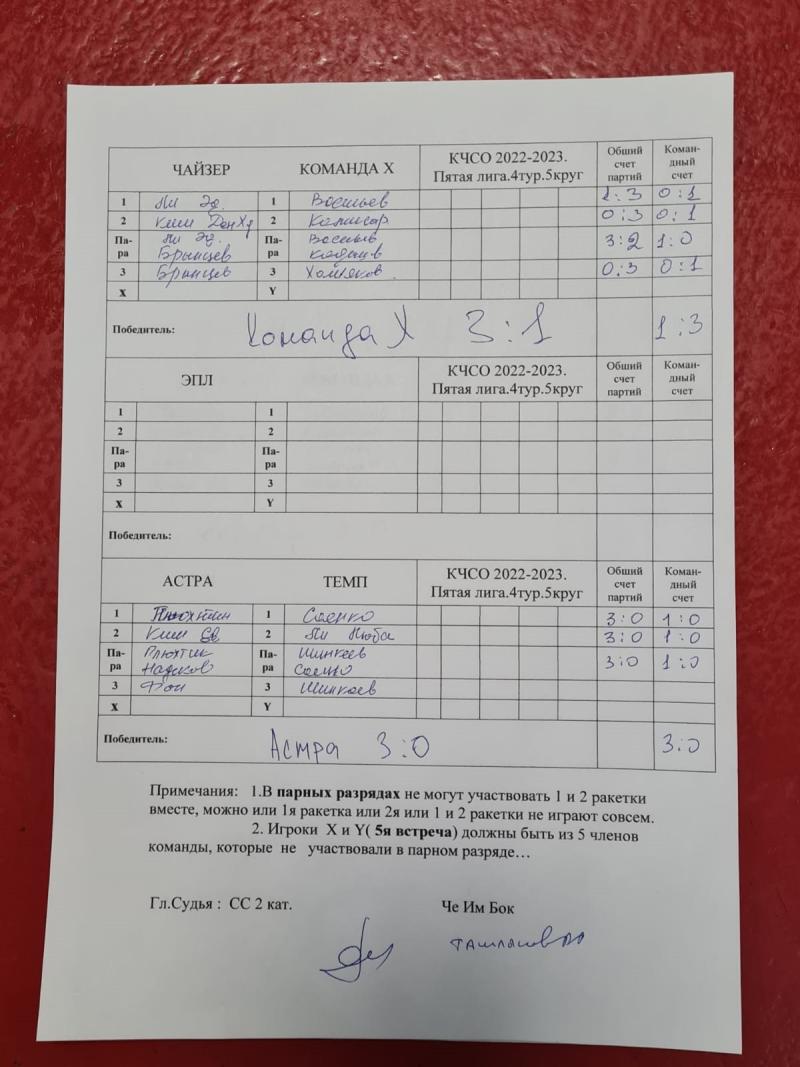 ЧАЙЗЕР КОМАНДА Х КЧСО 2022-2023. Пятая лига.4тур.5круг Общий счет партий Коман-дный счет
1 Ли Эд. 1 1:3 0:1
2 Ким 2 Комисар 0:3 0:1
Па-ра Ли Эд. Па-ра 3:2 1:0
Брынцев
3 Брынцев 3 Хомяков 0:3 0:1
Х Y
Победитель: Команда Х 3:1 1:3
ЭПЛ КЧСО 2022-2023. Пятая лига.4тур.5круг Общий счет партий Коман-дный счет
1 1
2 2
Па-ра Па-ра
3 3
Х Y
Победитель:
АСТРА ТЕМП КЧСО 2022-2023. Пятая лига.4тур.5круг Общий счет партий Коман-дный счет
1 1 Саенко 3:0 1:0
2 Ким 2 Ли Люба 3:0 1:0
Па-ра Па-ра Шинкаев 3:0 1:0
3 3 Шинкаев
Х Y
Победитель: Астра 3:0 3:0
Примечания: 1.В парных разрядах не могут участвовать 1 и 2 ракетки
вместе, можно или 1я ракетка или 2я или 1 и 2 ракетки не играют совсем.
2. Игроки Х и Y( 5я встреча) должны быть из 5 членов
команды, которые не участвовали в парном разряде…
Гл.Судья : СС 2 кат. Че Им Бок